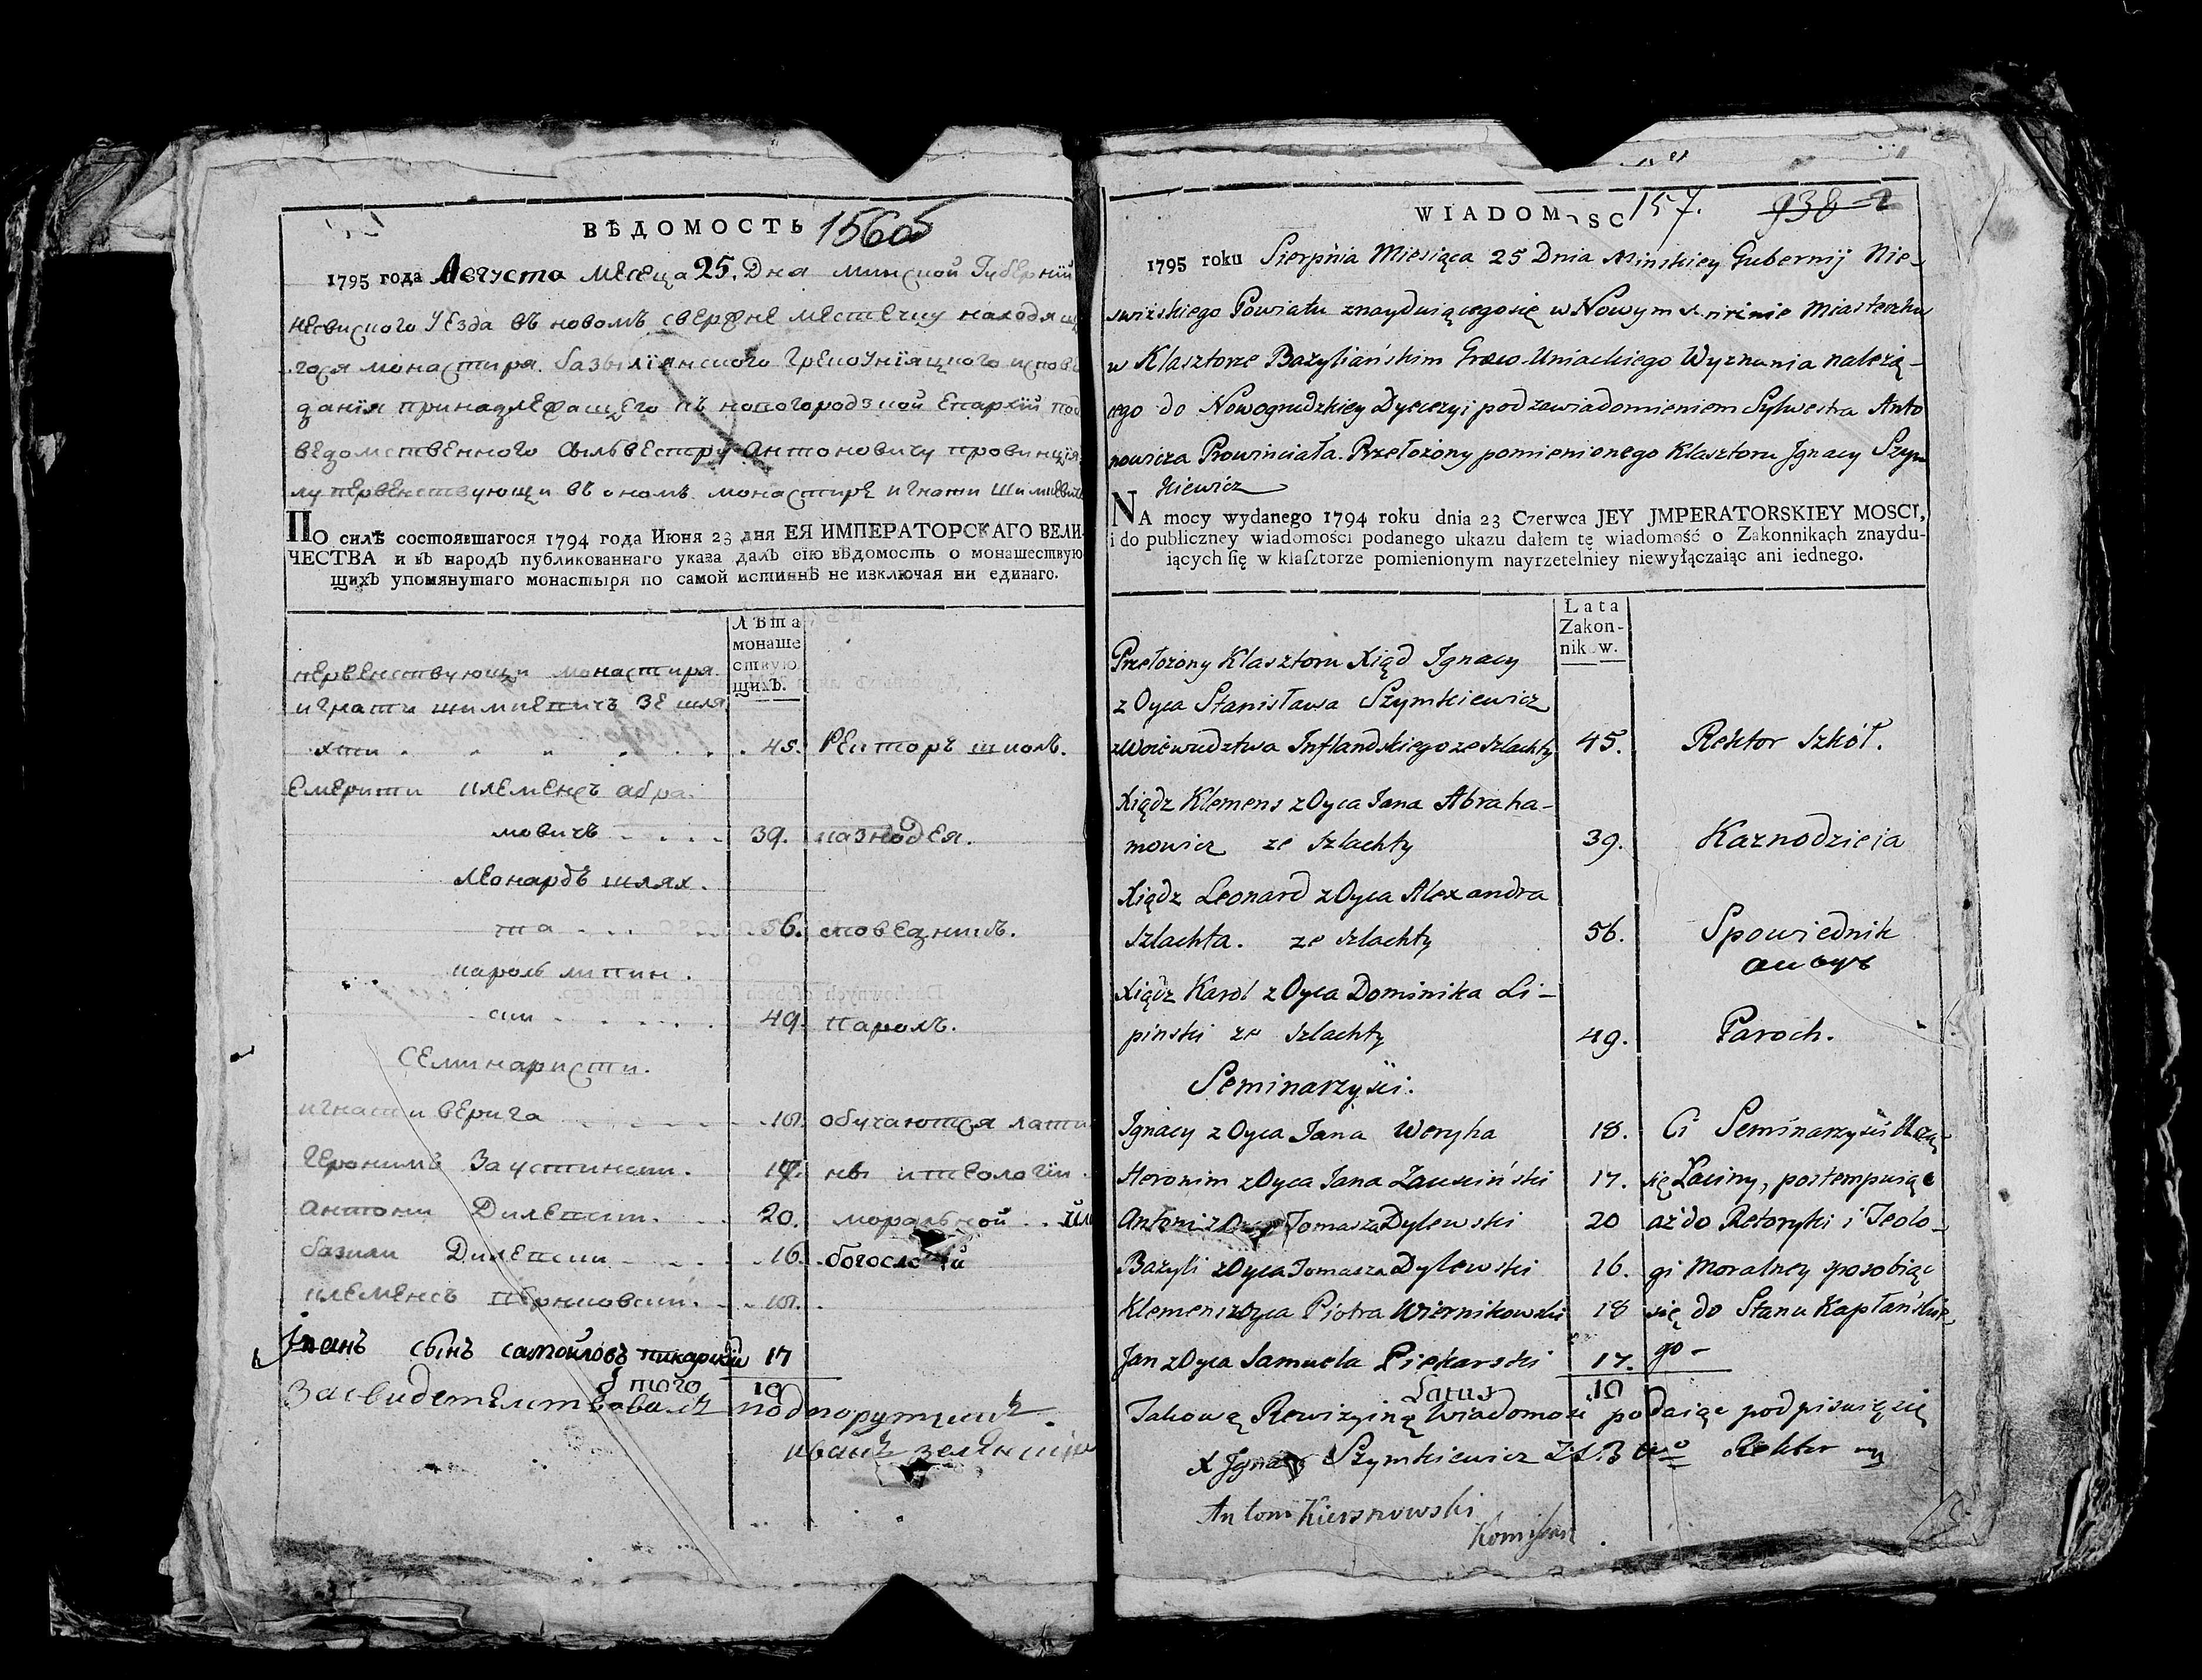 ВѢДОМОСТЬ 156об
1795 года Августа месеца 25. Дна минской Губернїи
несвиского Уезда въ новомъ свержне местечку находящ
гося монастиря базылїянского Грекоунїяцкого испове
данїя принадлежащего къ новогородзкой Епархїи под
ведомственного Сыльвестру Антоновичу провинцїя
лу первенствующи въ ономъ монастире игнати шимкевич
ПО силѣ состоявшагося 1794 года Июня 23 дня ЕЯ ИМПЕРАТОРСКАГО ВЕЛИ-
ЧЕСТВА и въ народъ публикованнаго указа далъ сїю вѣдомость о монашествую
щихъ упомянутаго монастыря по самой истиннѣ не изключая ни единаго.
Лѣта
монаше
ствую
щихъ.
первенствующи монастиря
игнати шимкевичъ зе шля
хти . . . . . 45. Ректоръ школъ.
Емерити клеменсъ абра.
мовичъ . . . . 39. казнодея.
леонардъ шлях.
та . . . . 56. споведникъ.
кароль липин.
ски . . . . . 49. парохъ.
Семинаристи.
игнати верига . . . . 18. обучаются лати
Геронимъ Заустински. 17. ны и теологїи.
антони Дилевски. . . 20. моральной . . или
базили Дилевски . . . . 16. богословїи
клеменсъ верниковски. . . 18. .
Іванъ сынъ самойловъ пикарскїй 17
Итого 10
Засвидетелствовалъ подпорутчикъ.
иванъ
WIADOMOSC 157. 938 2
1795 roku Sierpnia Miesiąca 25 Dnia Minskiey Gubernij Nie-
swizskiego Powiatu znayduiącego się w Nowym Swirżnie Miasteczku
w Klasztorze Bazyliańskim Graeco-Uniackiego Wyznania należą-
cego do Nowogrudzkiey Dyecezyi pod zawiadomieniem Sylwestra Anto
nowicza Prowinciała. Przełożony pomienionego Klasztoru Jgnacy Szym
kiewicz
NA mocy wydanego 1794 roku dnia 23 Czerwca JEY JMPERATORSKIEY MOSCI,
i do publiczney wiadomości podanego ukazu dałem tę wiadomość o Zakonnikach znaydu-
iących się w klasztorze pomienionym nayrzetelniey niewyłączaiąc ani iednego.
Lata
Zakon-
nikow.
Przełożony Klasztoru Xiąd Ignacy
z Oyca Stanisława Szymkiewicz
z Woiewudztwa Inflandskiego ze szlachty 45. Rektor Szkół.
Xiądz Klemens z Oyca Jana Abraha-
mowicz ze szlachty 39. Kaznodzieia
Xiądz Leonard z Oyca Alexandra
Szlachta. ze szlachty 56. Spowiednik
Xiądz Karol z Oyca Dominika Li-
pinski ze szlachty 49. Paroch.
Seminarzyści.
Ignacy z Oyca Jana Weryha 18. Ci Seminarzyści Uczą-
Heronim z Oyca Jana Zauściński 17. się Łaciny, postempuiąc
Antoni z Oyca Tomasza Dylewski 20 aż do Retoryki i Teolo-
Bazyli z Oyca Tomasza Dylewski 16. gi Moralney sposobiąc
Klemens z Oyca Piotra Wiernikowski 18 się do Stanu Kapłańskie
Jan z Oyca Samuela Piekarski 17. go -
Latus 10
Takową Rewizyiną Wiadomość podaiąc podpisuię się
X Jgnacy Szymkiewicz Rektor
Antoni Kiersnowski
Komisarz